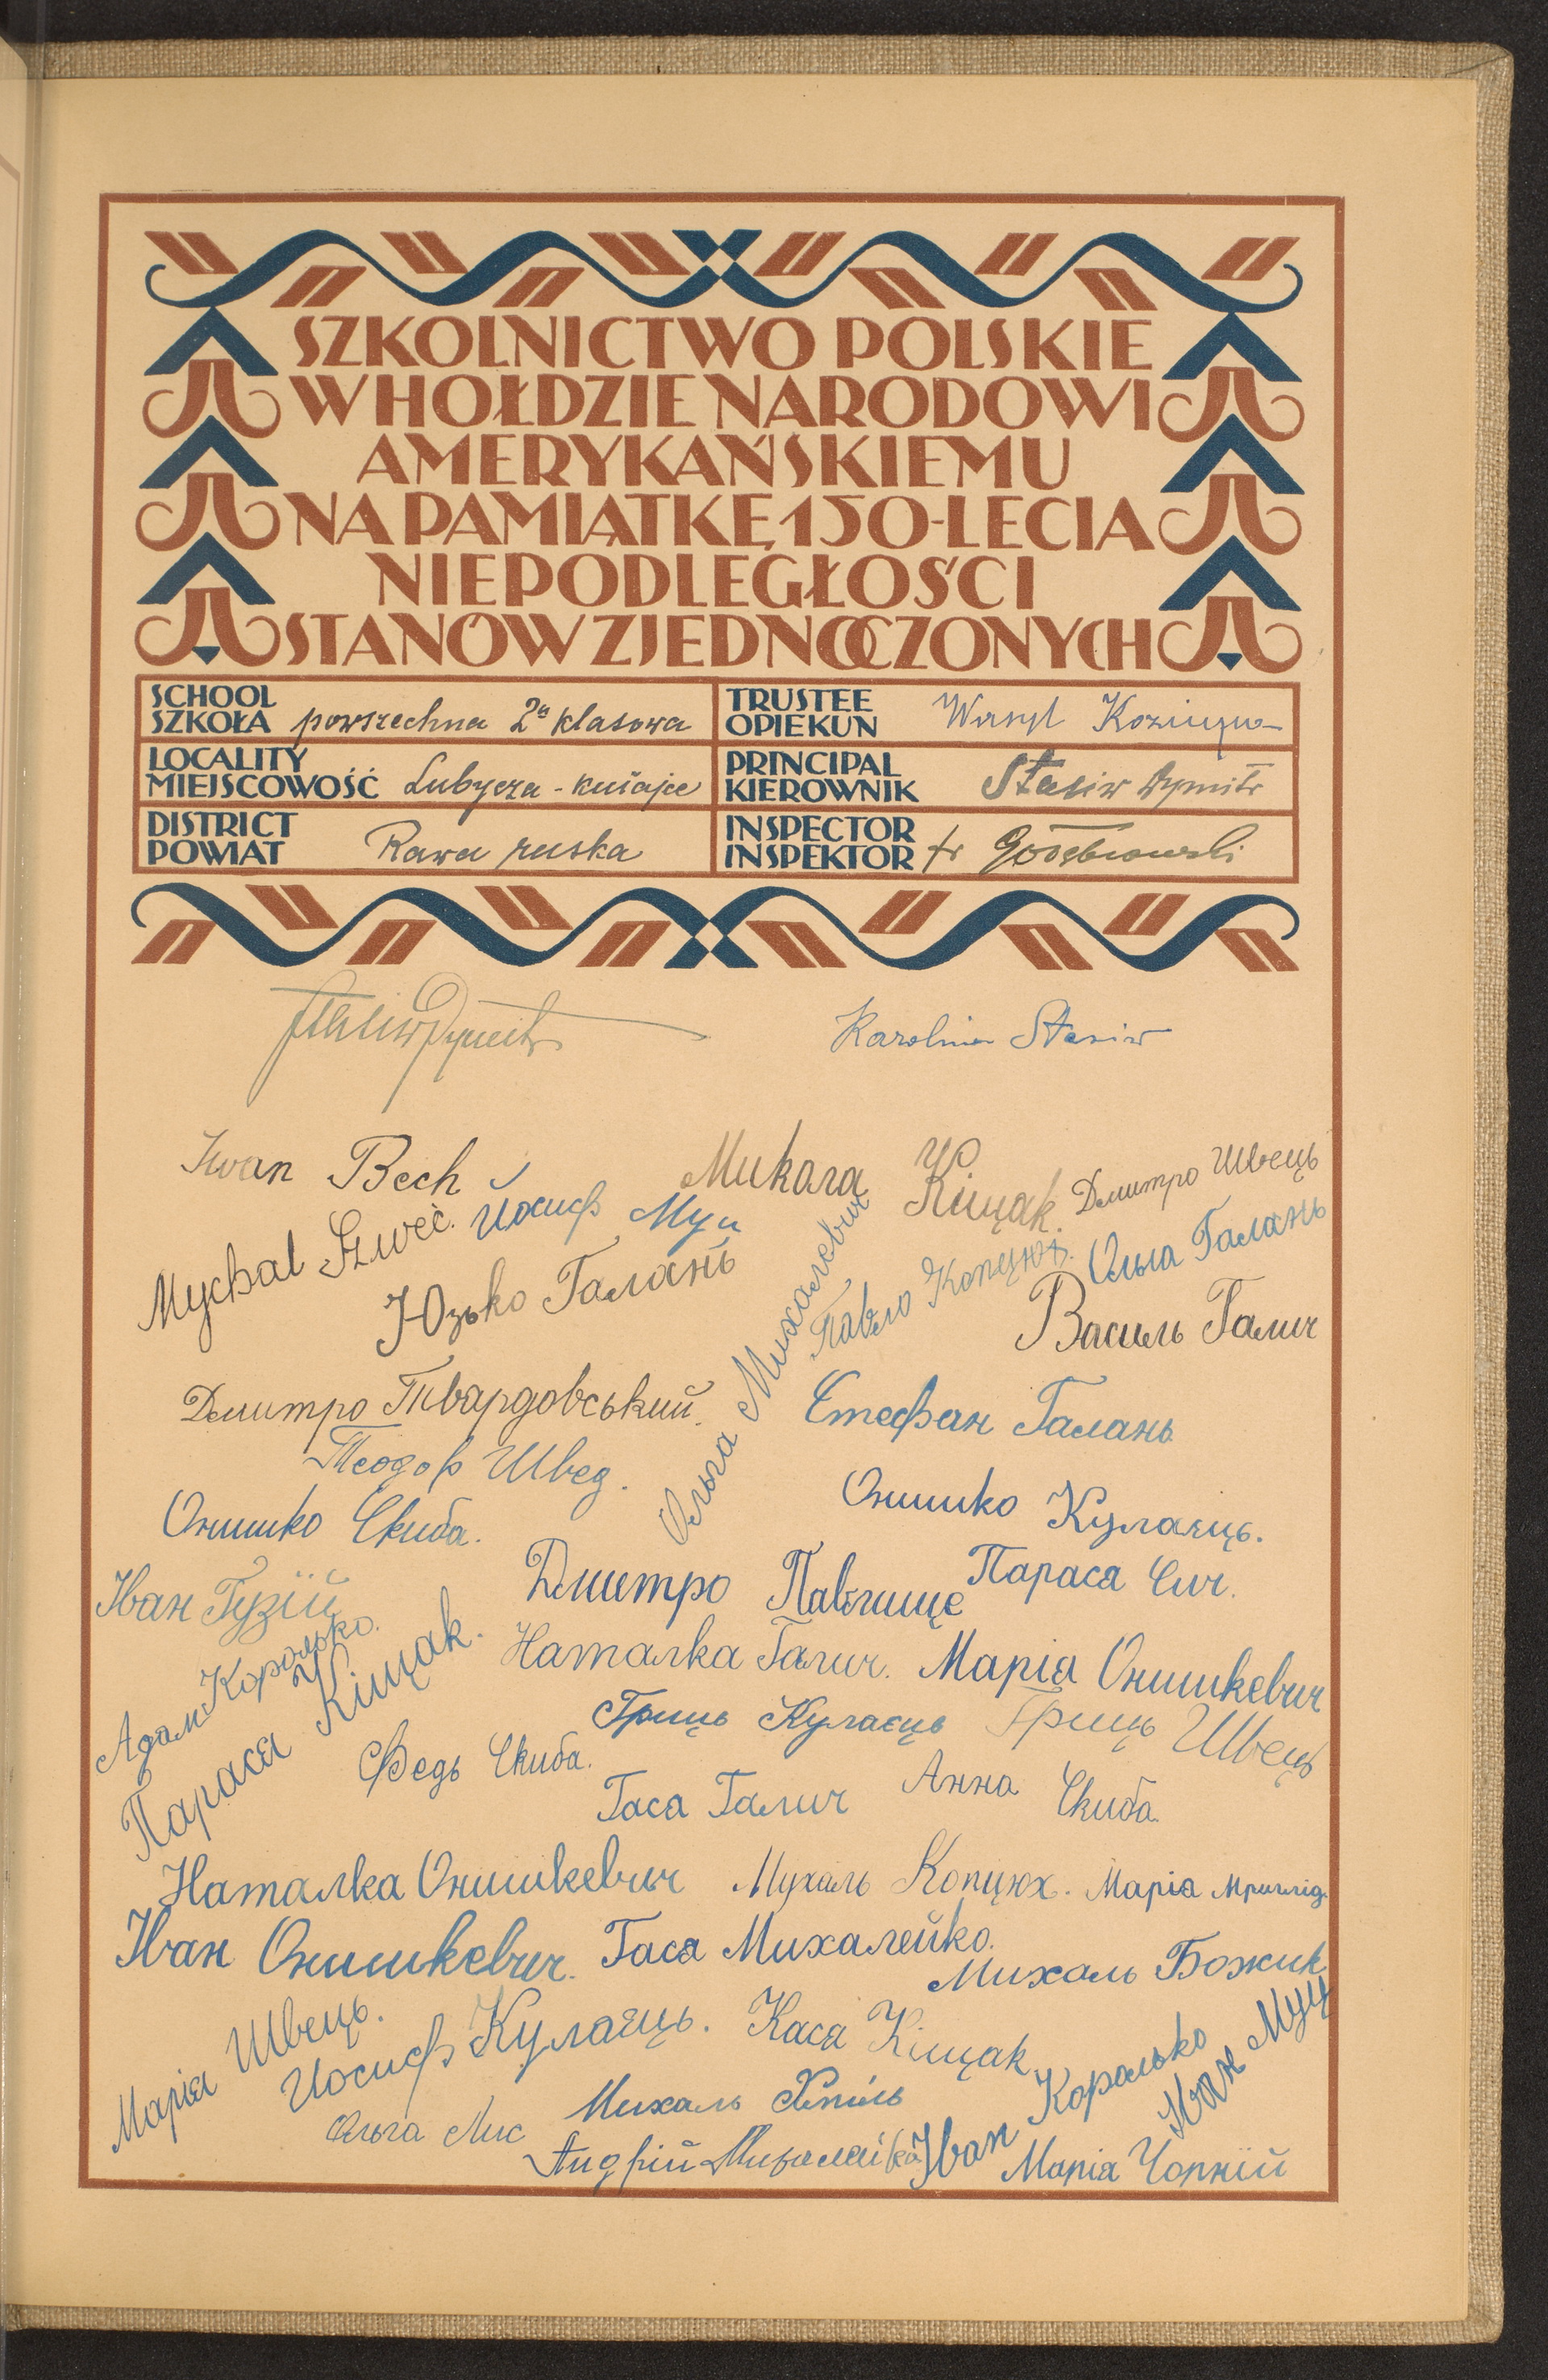 SZKOLNICTWO POLSKIE
W HOŁDZIE NARODOWI
AMERYKAŃSKIEMU
NA PAMIĄTKĘ 150-LECIA
NIEPODLEGŁOŚCI
STANÓW ZJEDNOCZONYCH
SCHOOL
SZKOŁA powszechna 2ª klasowa
TRUSTEE
OPIEKUN Wasyl
LOCALITY
MIEJSCOWOŚĆ Lubycza-kniaje
PRINCIPAL
KIEROWNIK Stasiw Dymitr
DISTRICT
POWIAT Rawa ruska
INSPECTOR
INSPEKTOR Gołębiowski
Stasiw Dymitr
Karolina Stasiw
Iwan Bech
Микола Кіщак.
Дмитро Швець
Mychal Szweć.
Йосиф Муц
Юзько Галань
Ольга Михалевич
Павло Копцюх.
Ольга Галань
Василь Галич
Дмитро Твардовський.
Стефан Галань
Теодор Швед.
Онишко Скиба.
Онишко Кулаєць.
Іван Гузій
Дмитро Павлище
Параса Сич.
Адам Королько.
Параса Кіщак.
Наталка Галич.
Маріа Онишкевич
Гриць Кулаєць
Гриць Швець
Федь Скиба.
Гаса Галич
Анна Скиба.
Наталка Онишкевич
Мухаль Копцюх.
Маріа Мриглід.
Іван Онишкевич.
Гаса Михалейко.
Михаль Божик
Маріа Швець.
Иосиф Кулаєць.
Каса Кіщак
Іван Королько
Іван Муц
Ольга Лис
Михаль Хміль
Андрій
Маріа Чорній